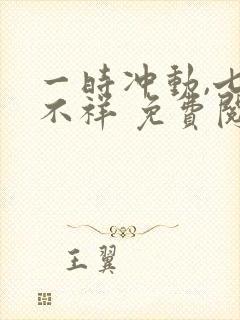 一時冲動,七
不祥 免費閱
王翼